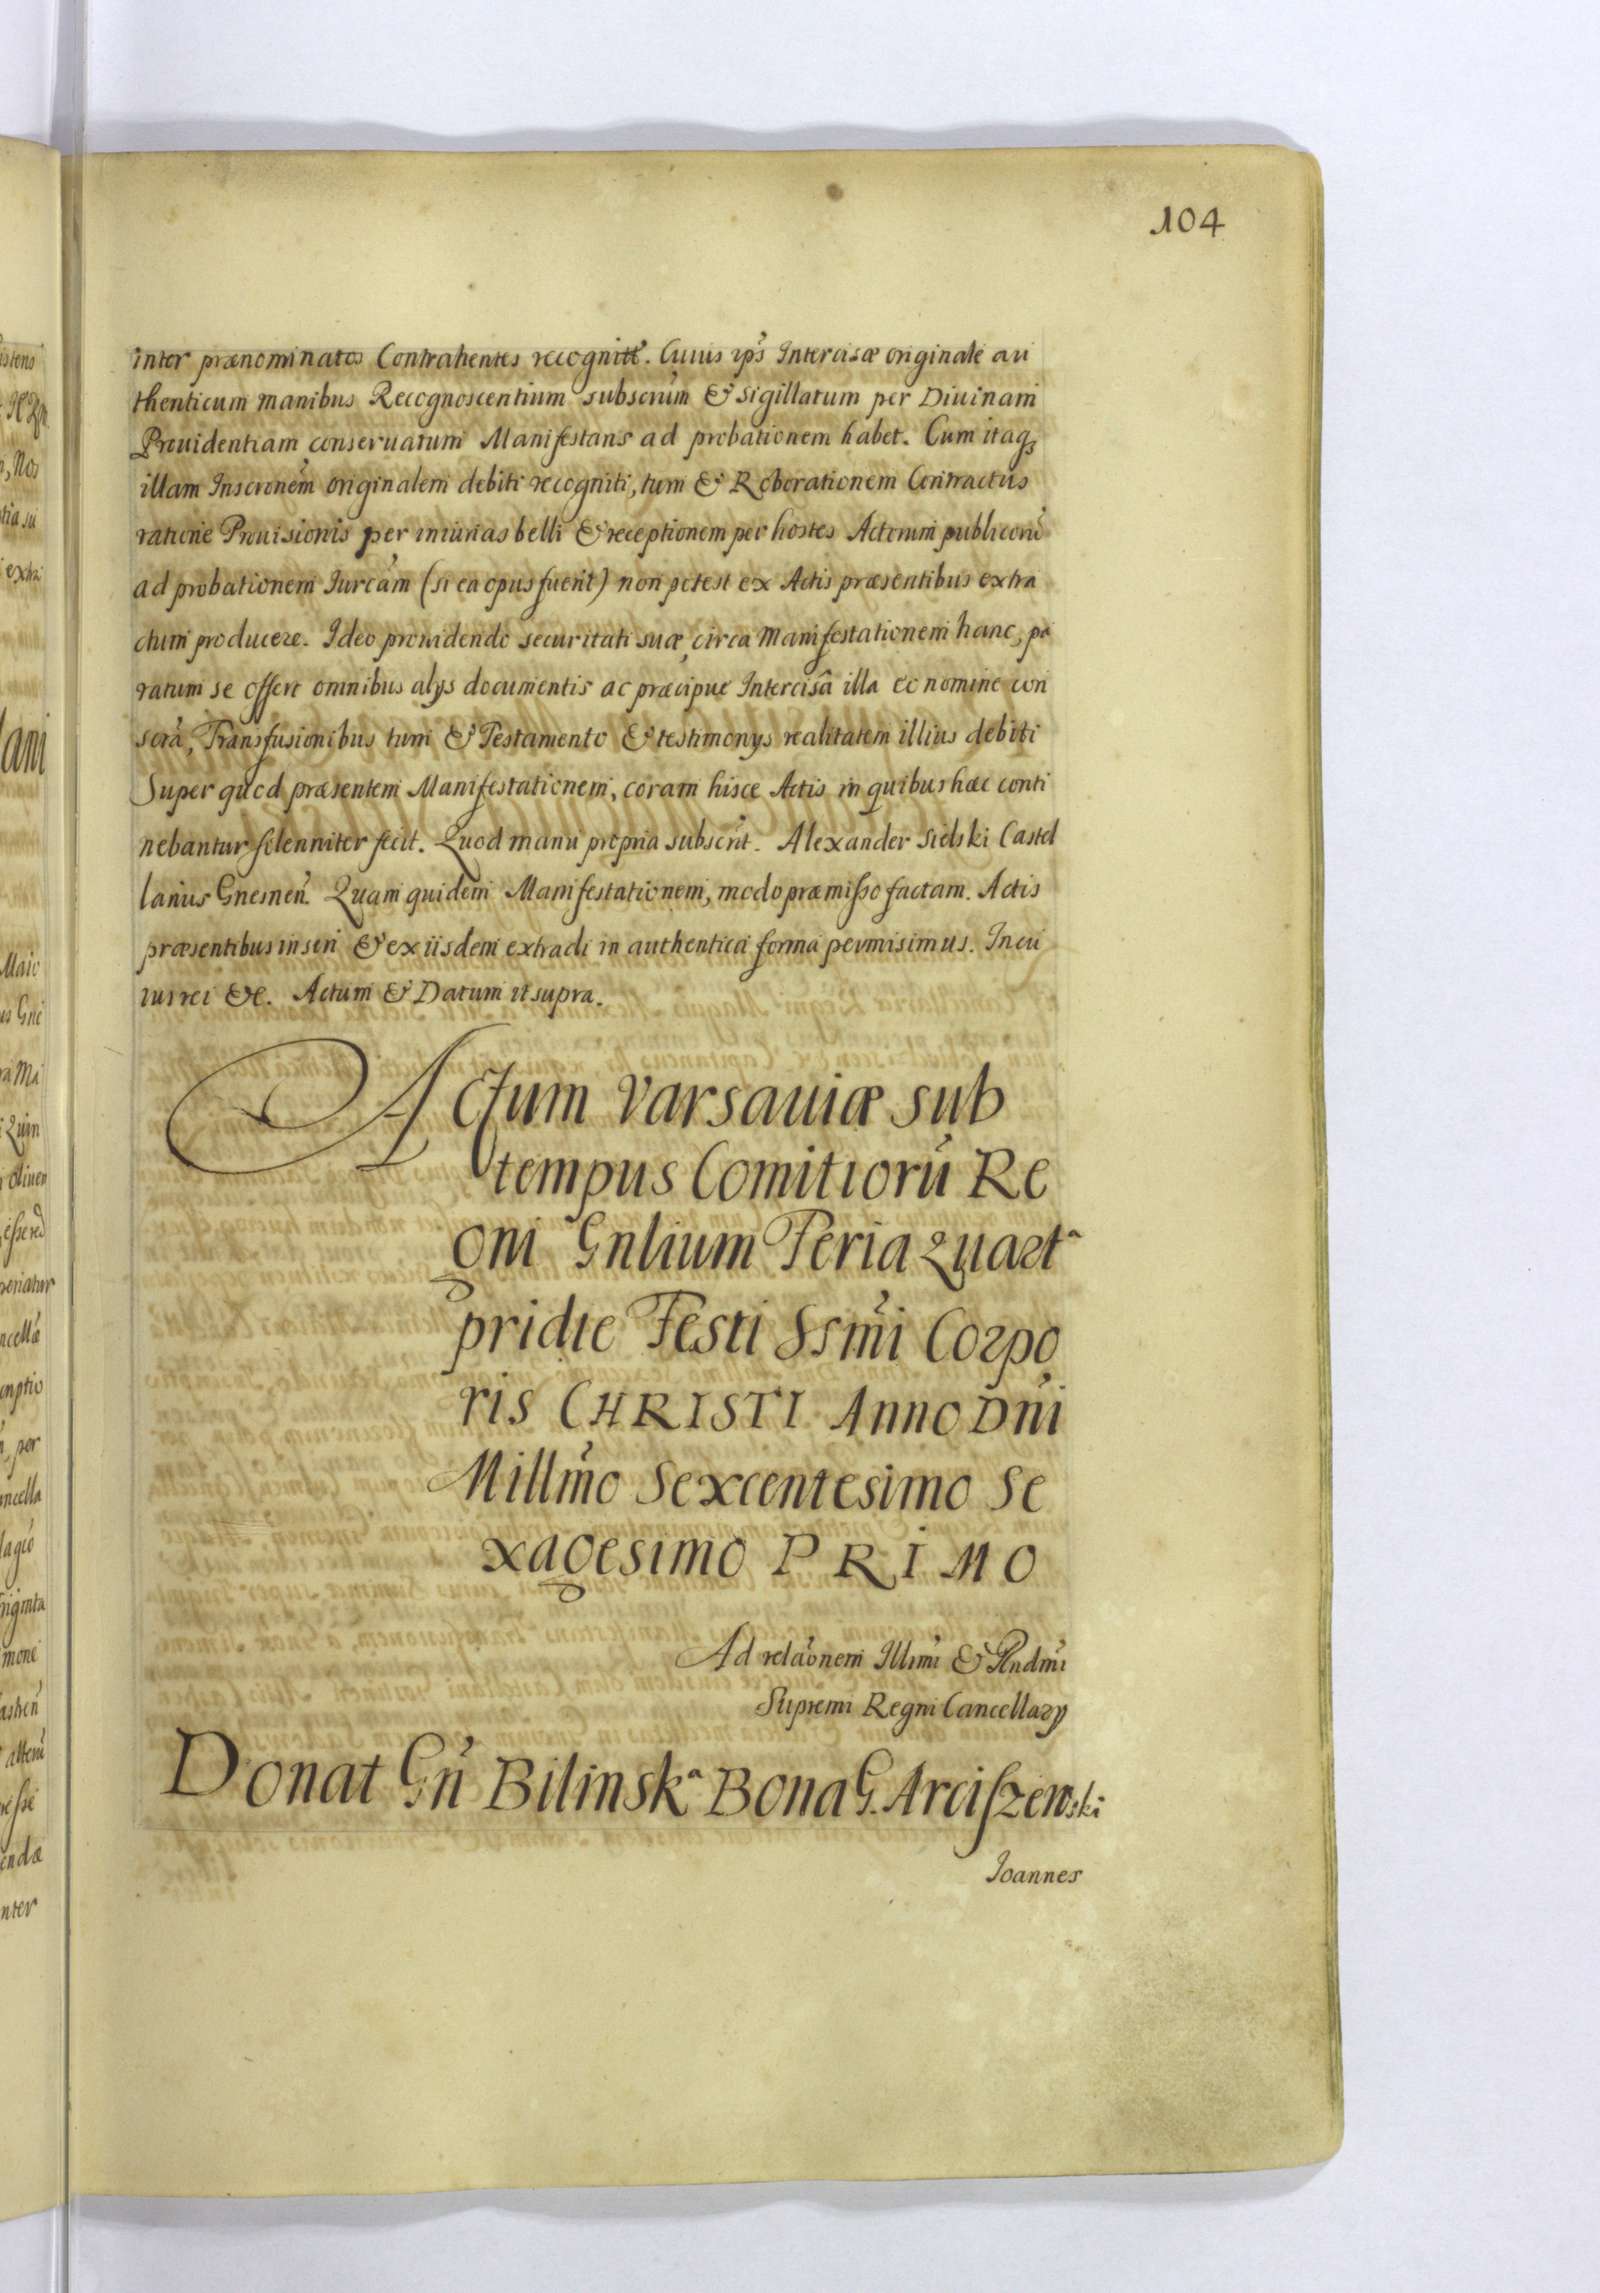 104
inter prænominatos Contrahentes recognitæ. Cuius ip̃s Intercisæ originale au
thenticum manibus Recognoscentium subscrũm & sigillatum per Diuinam
Prouidentiam conseruatum Manifestans ad probationem habet. Cum itaq3
illam Inscr̃onem originalem debiti recogniti, tum & Roborationem Contractus
ratione Prouisionis per iniurias belli & receptionem per hostes Actorum publicorũ
ad probationem Iurẽam (si ea opus fuerit) non potest ex Actis præsentibus extra
ctum producere. Ideo prouidendo securitati suæ, circa Manifestationem hanc, pa
ratum se offert omnibus alys documentis ac præcipue Intercisâ illa eo nomine con
scrã, Transfusionibus tum & Testamento & testimonys realitatem illius debiti
Super quod præsentem Manifestationem, coram hisce Actis in quibus hæc conti
nebantur solenniter fecit. Quod manu propria subscr̃it. Alexander Sielski Castel
lanus Gnesneñ. Quam quidem Manifestationem, modo præmisso factam. Actis
præsentibus inseri & ex iisdem extradi in authentica forma permisimus. In cu
ius rei &c. Actum & Datum ut supra.
Actum Varsauiæ sub
tempus Comitiorũ Re
gni Gnlium Feria Quarta
pridie Festi SSmĩ Corpo
ris CHRISTI Anno Dñi
Millm̃o Sexcentesimo Se
xagesimo PRIMO
Ad relãonem Illmĩ & Rndmĩ
Supremi Regni Cancellary
Donat Gñ Bilinska Bona G. Arciszewski
Ioannes